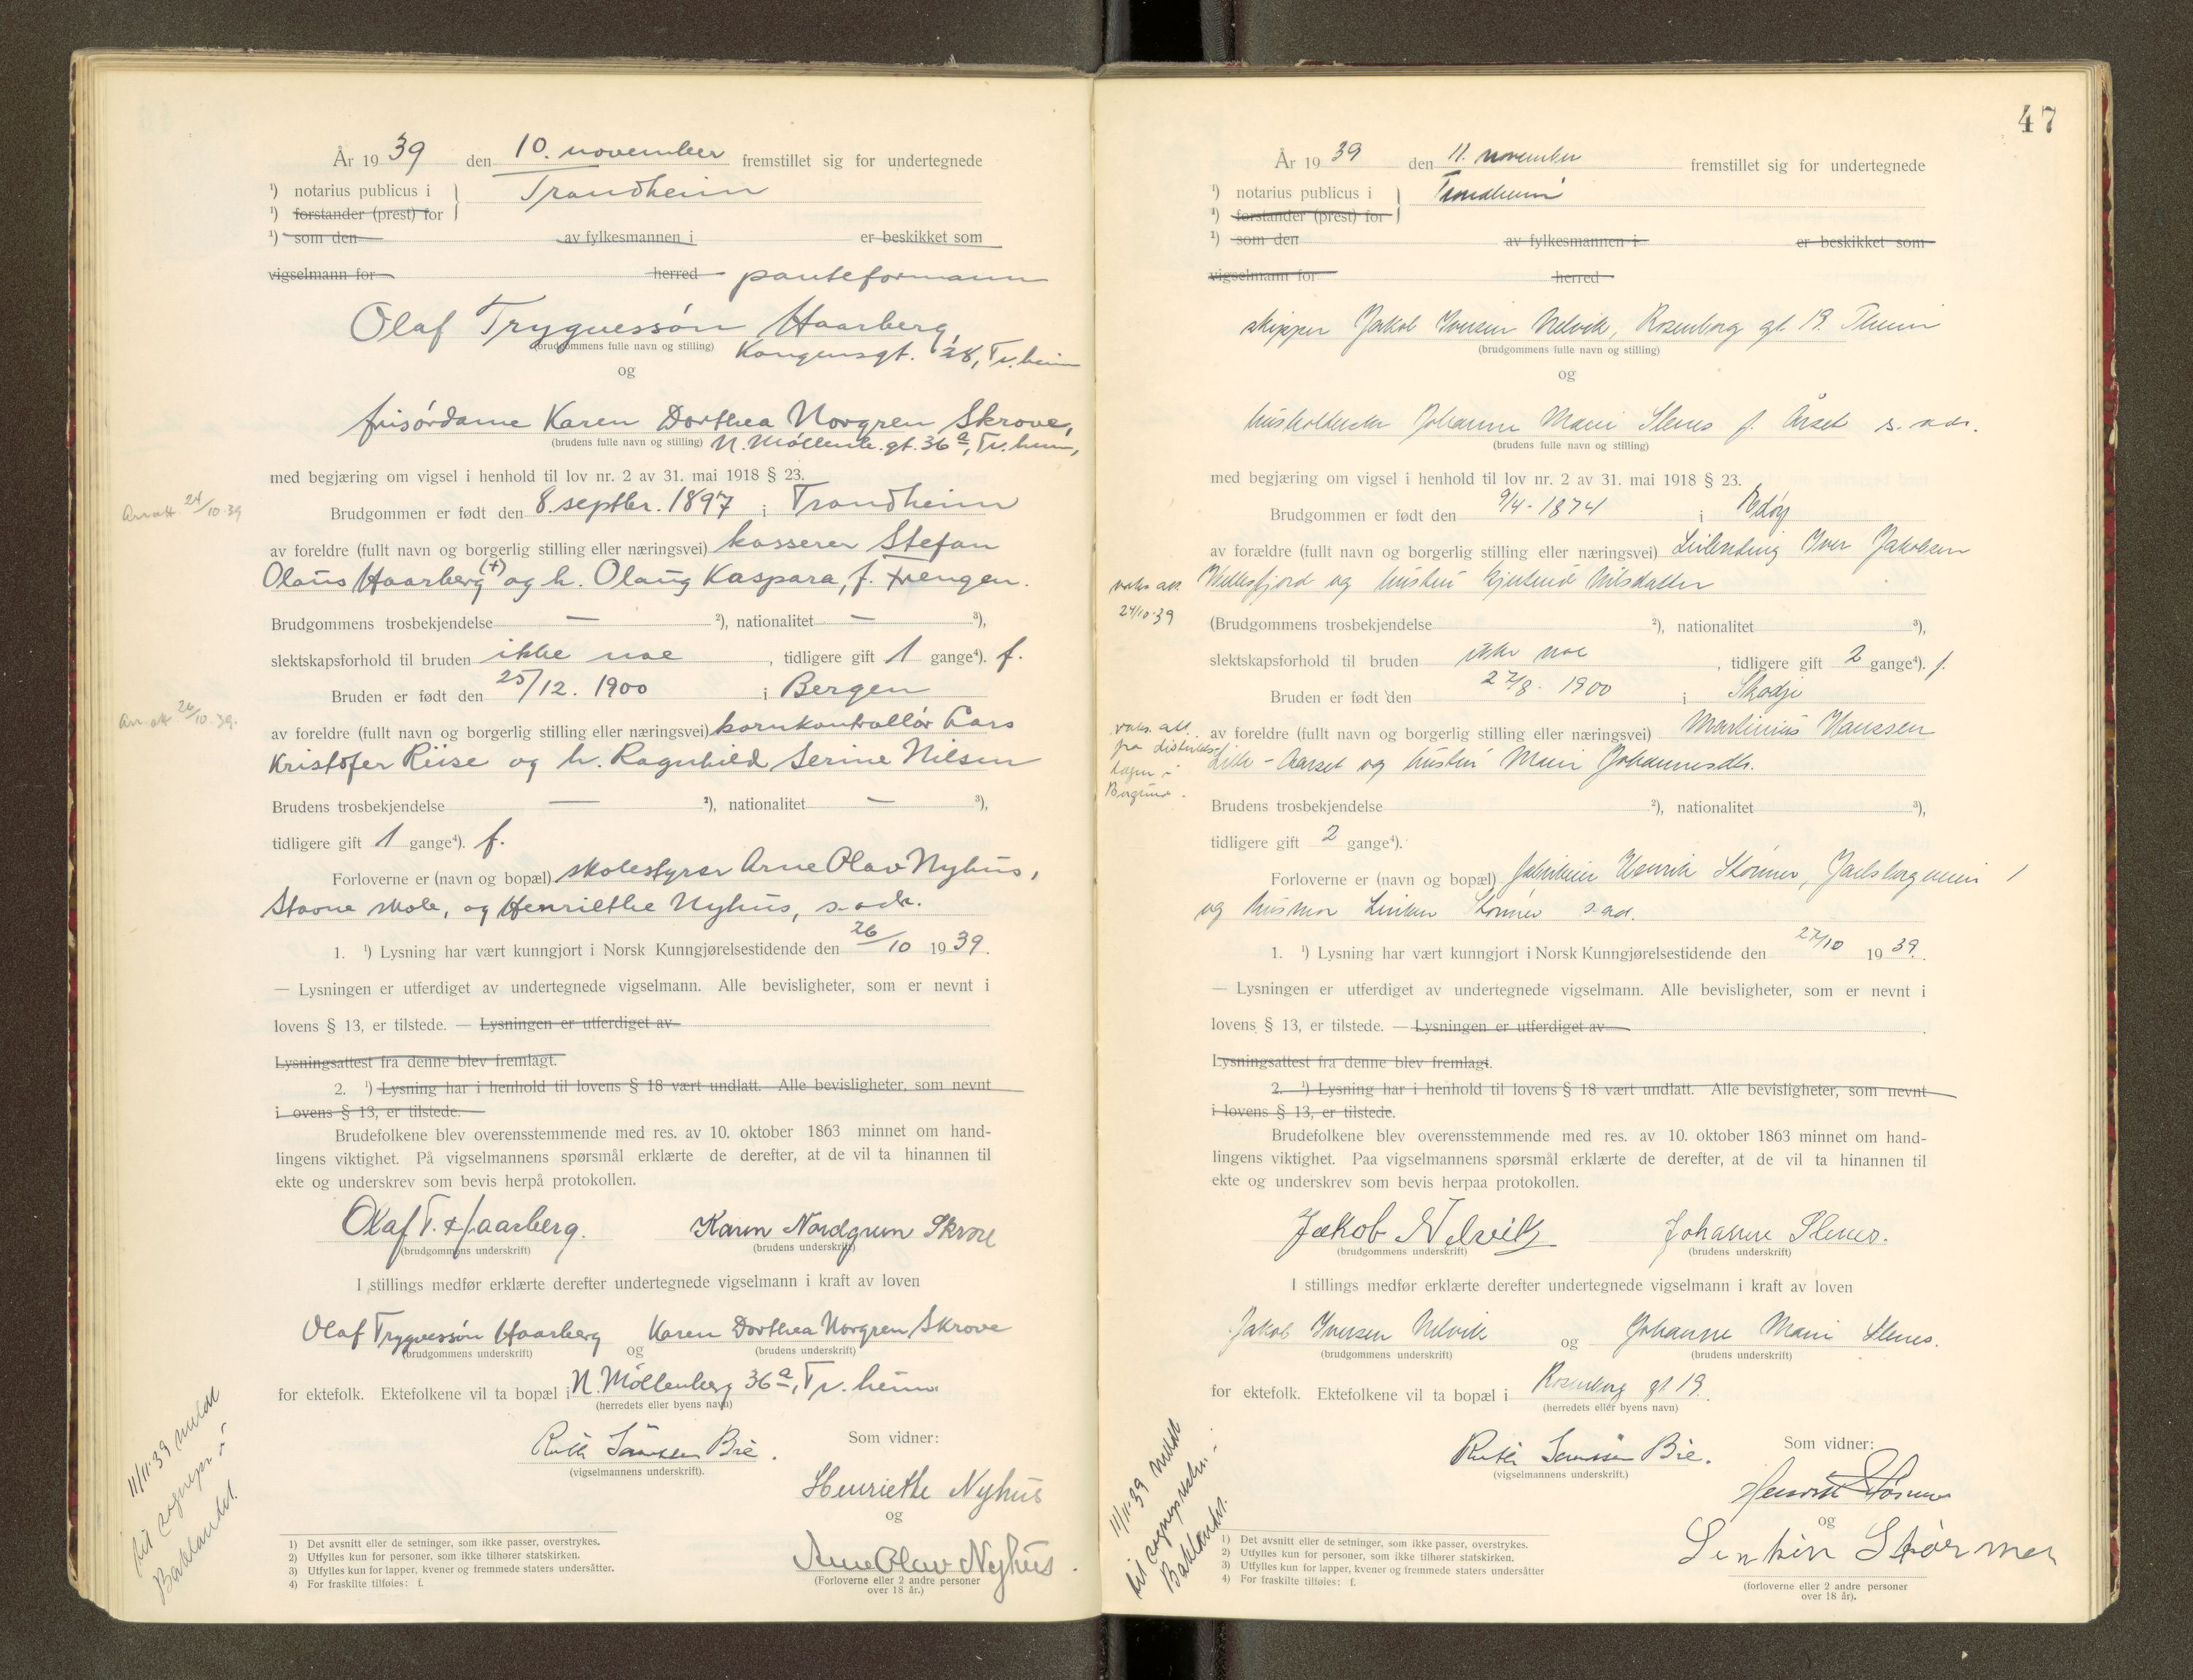 År 19 39 den 10. november fremstillet sig for undertegnede
¹) notarius publicus i } Trondheim
¹) forstander (prest) for
¹) som den av fylkesmannen i er beskikket som
vigselmann for herred panteformann
Olaf Tryguessøn Haarberg,
(brudgommens fulle navn og stilling) Kongensgt. 28, Tr.heim
og
frisørdame Karen Dorthea Norgren Skrove,
(brudens fulle navn og stilling) N. Møllenb.gt. 36 a, Tr.heim,
med begjæring om vigsel i henhold til lov nr. 2 av 31. mai 1918 § 23.
24/10.39
Brudgommen er født den 8. septbr. 1897 i Trondheim
av foreldre (fullt navn og borgerlig stilling eller næringsvei) kasserer Stefan
Olaus Haarberg (+) og h. Olaug Kaspara, f. Frengen.
Brudgommens trosbekjendelse — ²), nationalitet — ³),
slektskapsforhold til bruden ikke noe , tidligere gift 1 gange⁴). f.
Bruden er født den 25/12. 1900 i Bergen
26/10.39.
av foreldre (fullt navn og borgerlig stilling eller næringsvei) kornkontrollør Lars
Kristofer Riise og h. Ragnhild Serine Nilsen
Brudens trosbekjendelse — ²), nationalitet — ³),
tidligere gift 1 gange⁴). f.
Forloverne er (navn og bopæl) skolestyrer Arne Olav Nyhus,
Stavne skole, og Henriethe Nyhus, s. adr.
1. ¹) Lysning har vært kunngjort i Norsk Kunngjørelsestidende den 26/10 19 39.
— Lysningen er utferdiget av undertegnede vigselmann. Alle bevisligheter, som er nevnt i
lovens § 13, er tilstede. — Lysningen er utferdiget av
Lysningsattest fra denne blev fremlagt.
2. ¹) Lysning har i henhold til lovens § 18 vært undlatt. Alle bevisligheter, som nevnt
i ovens § 13, er tilstede.
Brudefolkene blev overensstemmende med res. av 10. oktober 1863 minnet om hand-
lingens viktighet. På vigselmannens spørsmål erklærte de derefter, at de vil ta hinannen til
ekte og underskrev som bevis herpå protokollen.
Olaf T. Haarberg. Karen Nordgren Skrove
(brudgommens underskrift) (brudens underskrift)
I stillings medfør erklærte derefter undertegnede vigselmann i kraft av loven
Olaf Tryguessøn Haarberg og Karen Dorthea Norgren Skrove
(brudgommens underskrift) (brudens underskrift)
for ektefolk. Ektefolkene vil ta bopæl i N. Møllenberg 36 a, Tr.heim
(herredets eller byens navn)
Ruth Sørssen Bie. Som vidner:
(vigselmannens underskrift).
Henriethe Nyhus
og
Arne Olav Nyhus.
(Forloverne eller 2 andre personer
over 18 år.)
11/11.39 meldt
til sognepr. i
Baklandet.
1) Det avsnitt eller de setninger, som ikke passer, overstrykes.
2) Utfylles kun for personer, som ikke tilhører statskirken.
3) Utfylles kun for lapper, kvener og fremmede staters undersåtter.
4) For fraskilte tilføies: f.
47
År 19 39 den 11. november fremstillet sig for undertegnede
¹) notarius publicus i } Trondheim
¹) forstander (prest) for
¹) som den av fylkesmannen i er beskikket som
vigselmann for herred
skipper Jakob Iversen Nelvik, Rosenborg gt. 19. Theim
(brudgommens fulle navn og stilling)
og
husholderske Johanne Marie Slenes f. Årset s. adr.
(brudens fulle navn og stilling)
med begjæring om vigsel i henhold til lov nr. 2 av 31. mai 1918 § 23.
Brudgommen er født den 9/4-1874 i Edøy
av forældre (fullt navn og borgerlig stilling eller næringsvei) Leilending Iver Jakobsen
vaks. att. og hustru Nilsdatter
24/10-39
(Brudgommens trosbekjendelse ²), nationalitet ³),
slektskapsforhold til bruden ikke noe , tidligere gift 2 gange⁴). f.
Bruden er født den 27/8. 1900 i Skodje
av foreldre (fullt navn og borgerlig stilling eller næringsvei) Martinius Hanssen
vaks. att.
fra distrikts-
legen i
Borgund.
Lille-Aarset og hustru Marie Johannesdtr.
Brudens trosbekjendelse ²), nationalitet ³),
tidligere gift 2 gange⁴).
Forloverne er (navn og bopæl) Henrik Størmer, Jarlsborgveien 1
og husmor Linken Størmer s. ad.
1. ¹) Lysning har vært kunngjort i Norsk Kunngjørelsestidende den 27/10 19 39.
— Lysningen er utferdiget av undertegnede vigselmann. Alle bevisligheter, som er nevnt i
lovens § 13, er tilstede. — Lysningen er utferdiget av .
Lysningsattest fra denne blev fremlagt.
2. ¹) Lysning har i henhold til lovens § 18 vært undlatt. Alle bevisligheter, som nevnt
i lovens § 13, er tilstede.
Brudefolkene blev overensstemmende med res. av 10. oktober 1863 minnet om hand-
lingens viktighet. Paa vigselmannens spørsmål erklærte de derefter, at de vil ta hinannen til
ekte og underskrev som bevis herpaa protokollen.
Jakob Nelvik Johanne Slenes.
(brudgommens underskrift) (brudens underskrift)
I stillings medfør erklærte derefter undertegnede vigselmann i kraft av loven
Jakob Iversen Nelvik og Johanne Marie Slenes.
(brudgommens underskrift) (brudens underskrift)
for ektefolk. Ektefolkene vil ta bopæl i Rosenborg gt 19.
(herredets eller byens navn)
Ruth Sørssen Bie. Som vidner:
(vigselmannens underskrift.)
Henrik Størmer
og
Linken Størmer
(forloverne eller 2 andre personer
over 18 år).
11/11-39 meldt
til sognepresten i
Baklandet.
1) Det avsnitt eller de setninger, som ikke passer, overstrykes.
2) Utfylles kun for personer, som ikke tilhører statskirken.
3) Utfylles kun for lapper, kvener og fremmede staters undersåtter
4) For fraskilte tilføies: f.